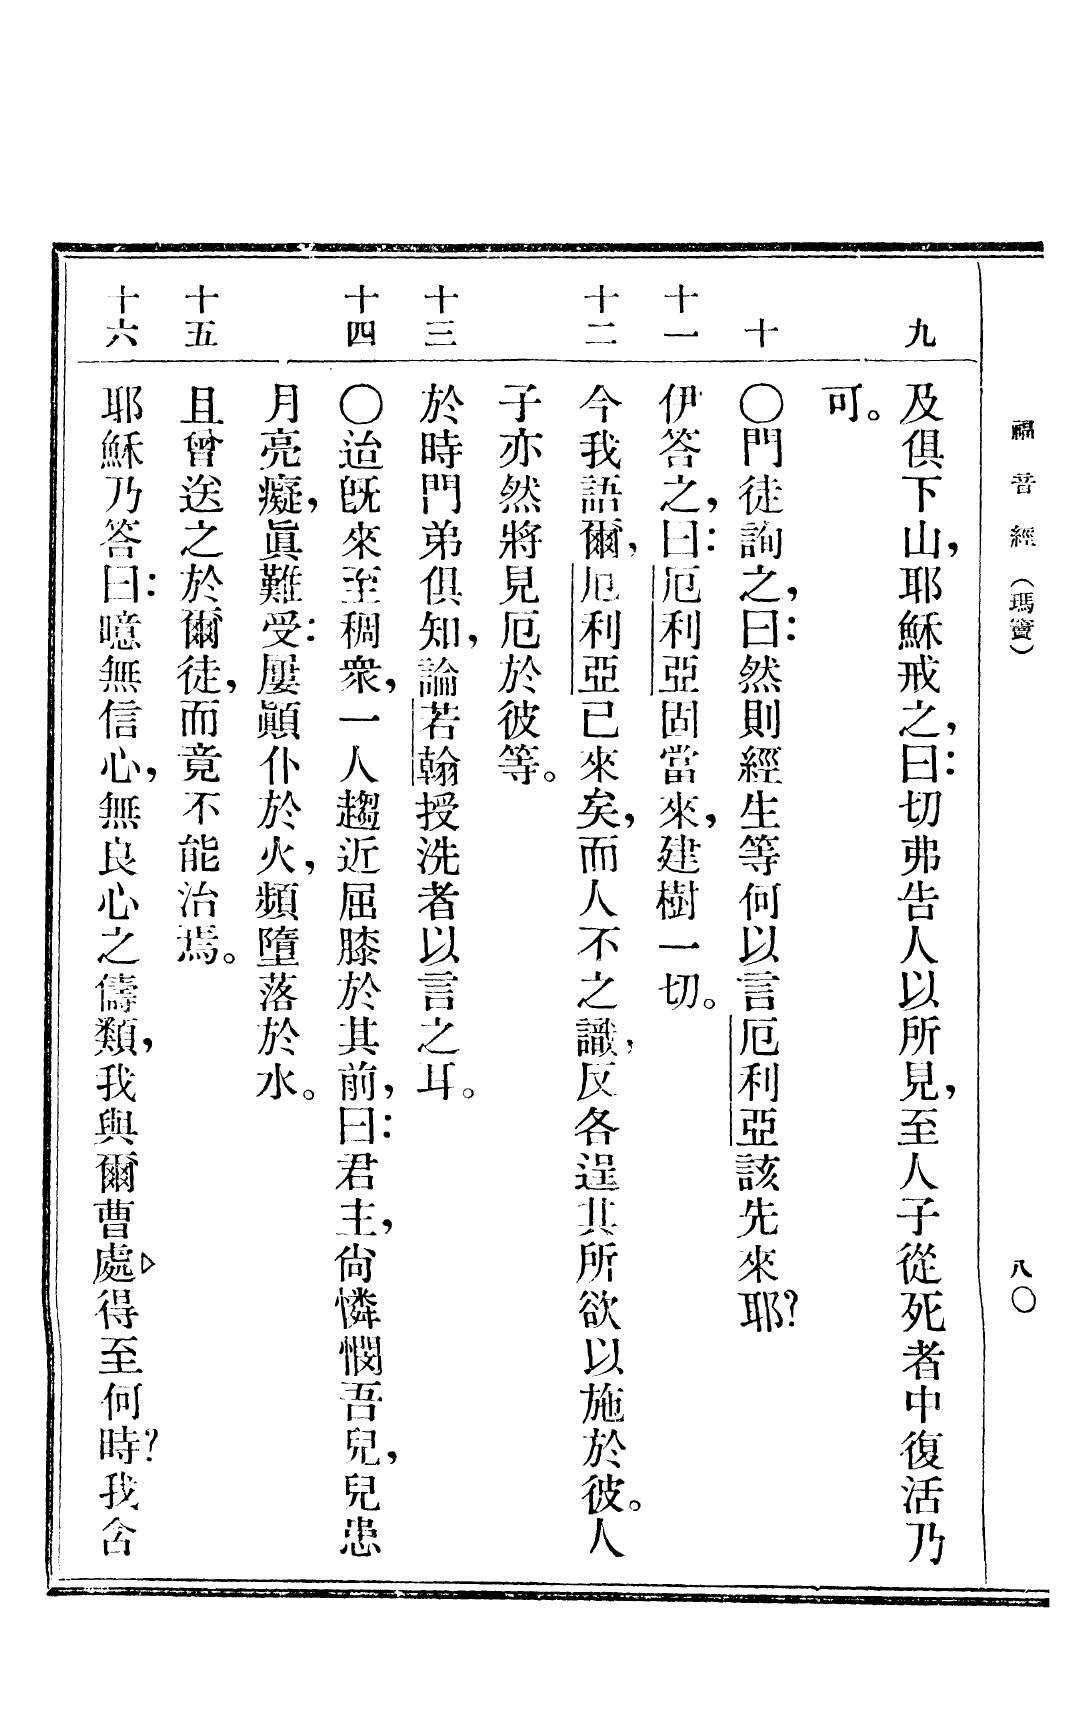 福音經（瑪竇）
八〇
九
及俱下山，耶穌戒之，曰：切弗告人以所見，至人子從死者中復活乃
可。
十
〇門徒詢之，曰：然則經生等何以言厄利亞該先來耶？
十一
伊答之，曰：厄利亞固當來，建樹一切。
十二
今我語爾，厄利亞已來矣，而人不之識，反各逞其所欲以施於彼。人
子亦然將見厄於彼等。
十三
於時門弟俱知，論若翰授洗者以言之耳。
十四
〇迨旣來至稠衆，一人趨近屈膝於其前，曰：君主，尙憐憫吾兒，兒患
月亮癡，眞難受：屢顚仆於火，頻墮落於水。
十五
且曾送之於爾徒，而竟不能治焉。
十六
耶穌乃答曰：噫無信心，無良心之儔類，我與爾曹處▷得至何時？我含